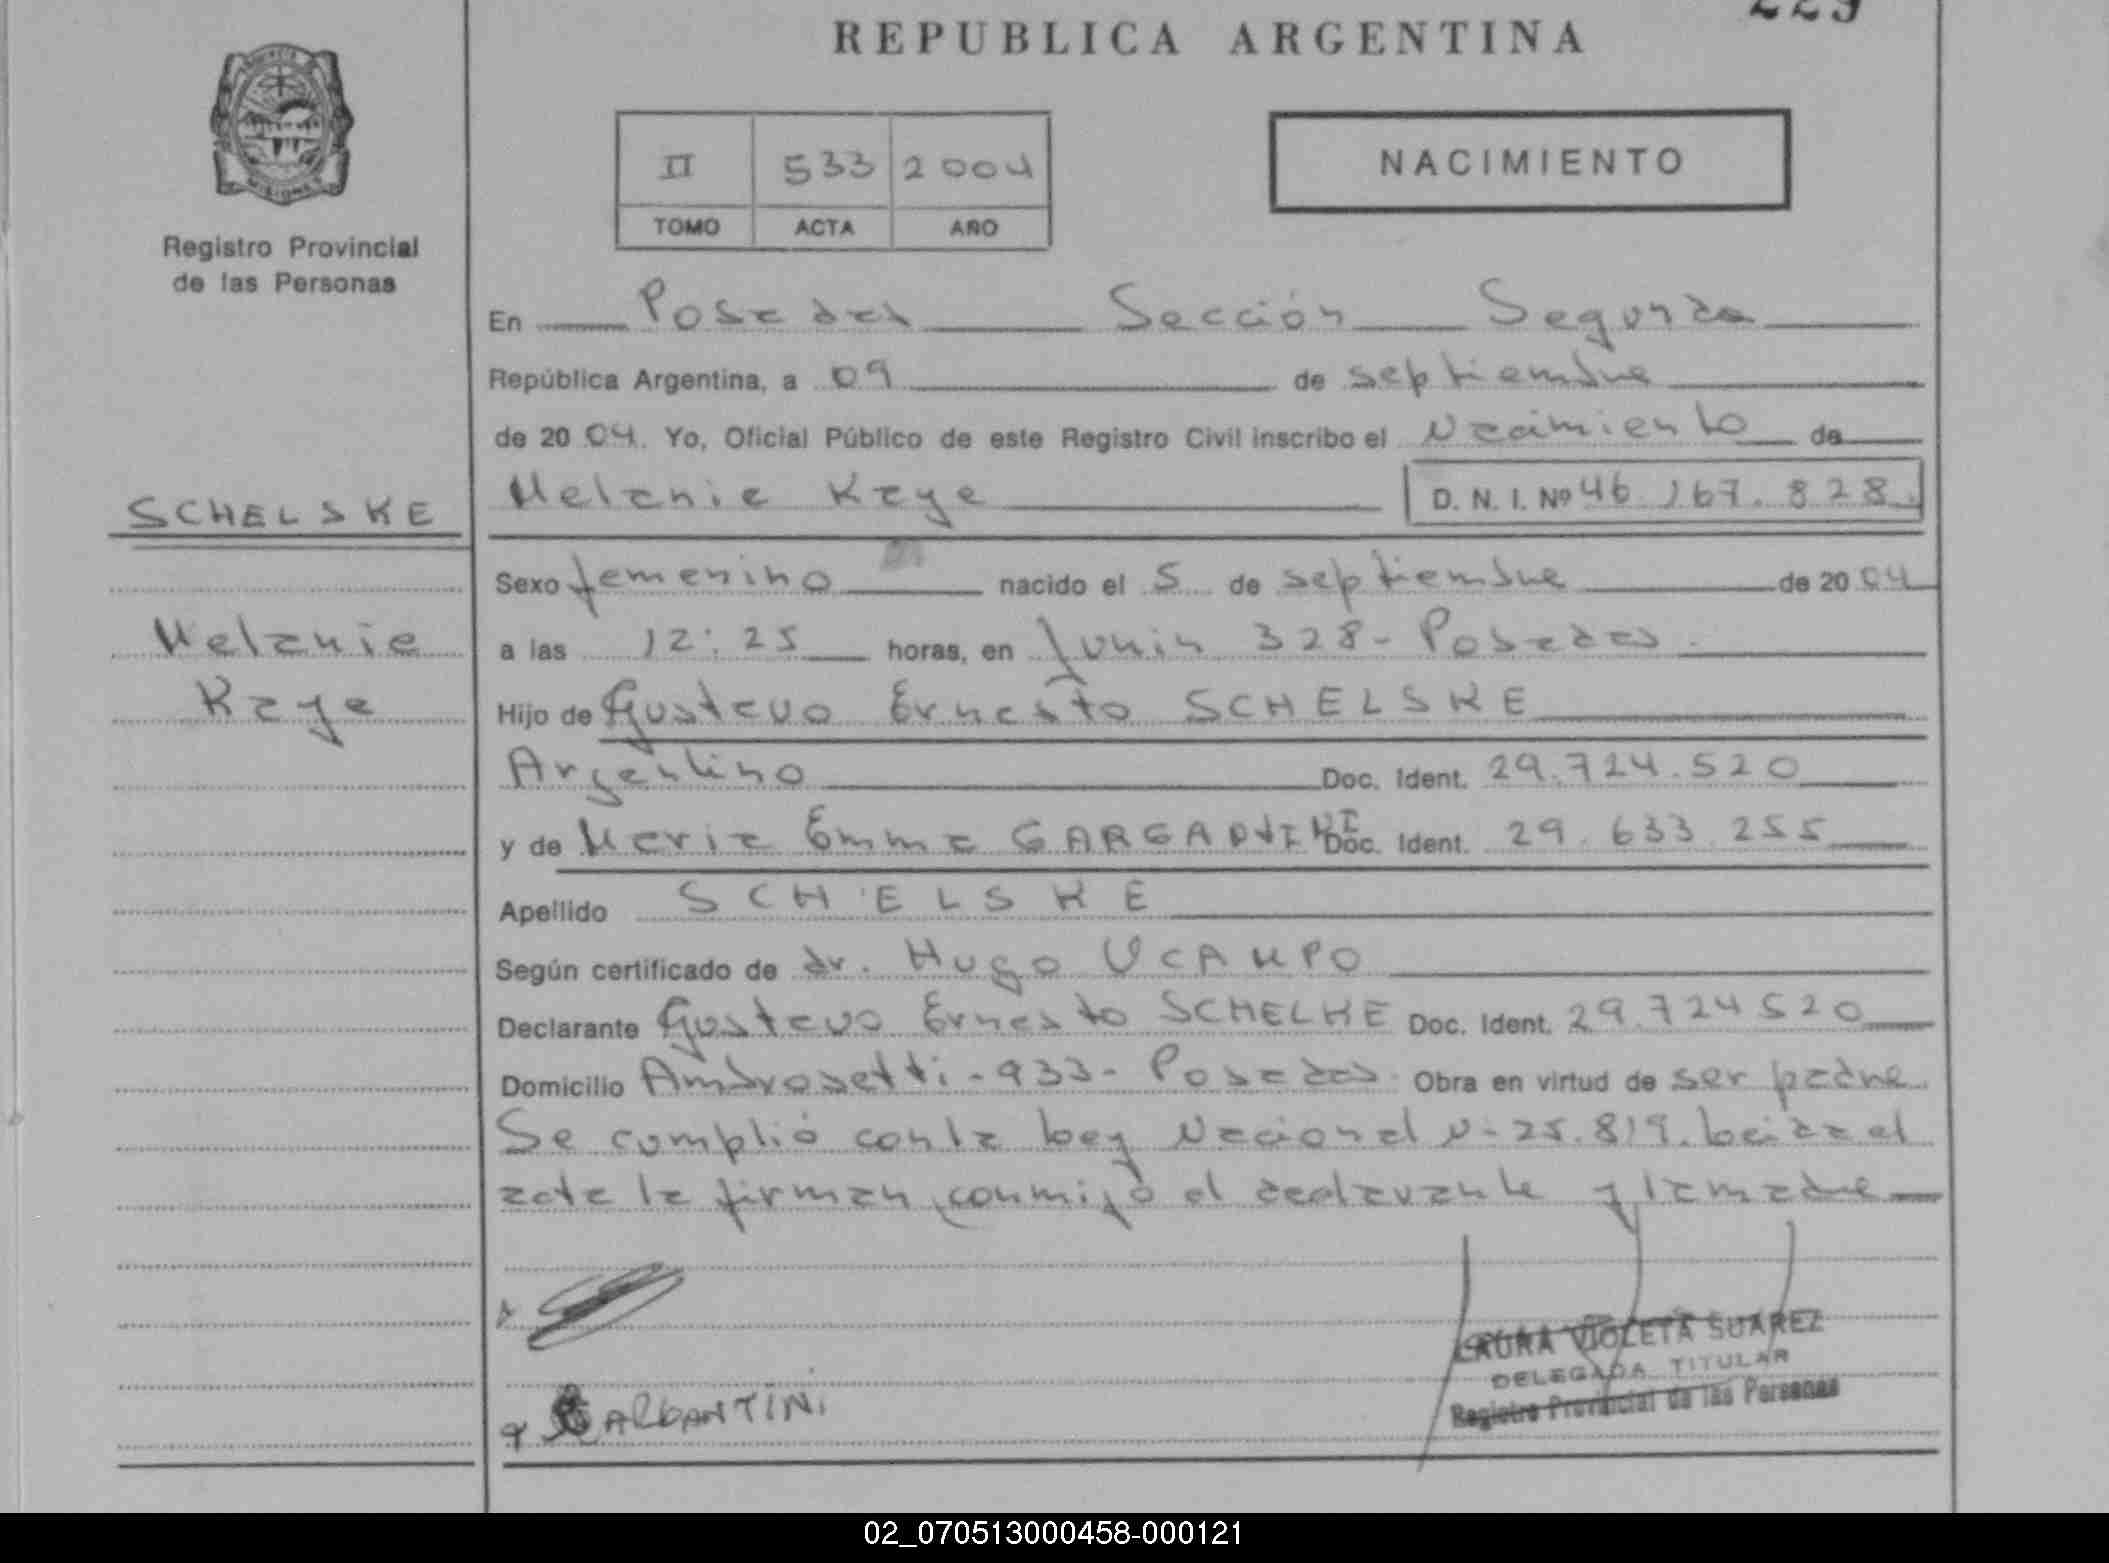 229
REPUBLICA ARGENTINA
II 533 2004
TOMO ACTA AÑO
NACIMIENTO
MISIONES
Registro Provincial
de las Personas
En Posadas Sección Segunda
República Argentina, a 09 de septiembre
de 2004. Yo, Oficial Público de este Registro Civil inscribo el Nacimiento de
Melanie Kaye D. N. I. Nº 46.167.828.
SCHELSKE
Sexo femenino nacido el 5 de septiembre de 2004
Melanie
a las 12:25 horas, en Junin 328- Posadas.
Kaye
Hijo de Gustavo Ernesto SCHELSKE
Argentino Doc. Ident. 29.724.520
y de Maria Emma Doc. Ident. 29.633.255
Apellido SCHELSKE
Según certificado de dr. Hugo
Declarante Gustavo Ernesto SCHELKE Doc. Ident. 29.724520
Domicilio Ambrosetti-933- Posadas. Obra en virtud de ser padre.
Se cumplió con la Ley Nacional Nº 25.819. Leida el
acta la firman, conmigo el declarante y la madre
LAURA VIOLETA SUAREZ
DELEGADA TITULAR
Registro Provincial de las Personas
02_070513000458-000121